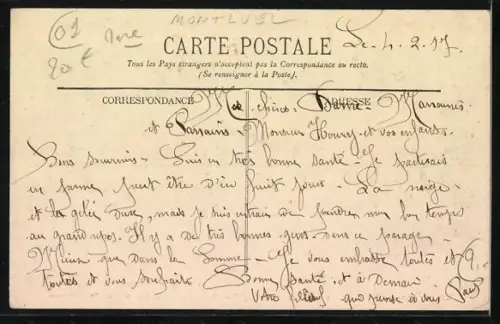 01
1ere
MONTLUEL
20€
CARTE POSTALE
Le 4. 2. 17.
Tous les Pays étrangers n'acceptent pas la Correspondance au recto.
(Se renseigner à la Poste).
CORRESPONDANCE ADRESSE
chères Marraines
et Parrains, Monsieur et vos enfants.
Bons souvenirs - Suis en très bonne santé - Je partirais
en perme peut être d'ici huit jours - La neige
et la gelée dure, mais je suis en train de prendre mon bon temps
au grand repos. Il y a de très bonnes gens dans ce parage
Mieux que dans la Somme - Je vous embrasse toutes et
toutes et vous souhaite Bonne Santé et à Demain
Votre filleul qui pense à vous